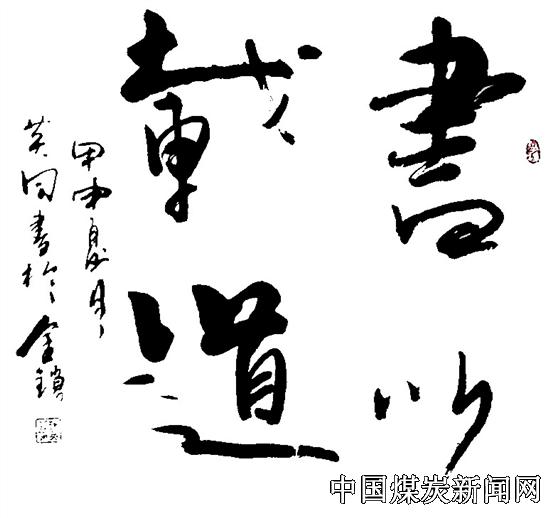 書以
載道
甲申夏月
英同書於金鎖
中国煤炭新闻网